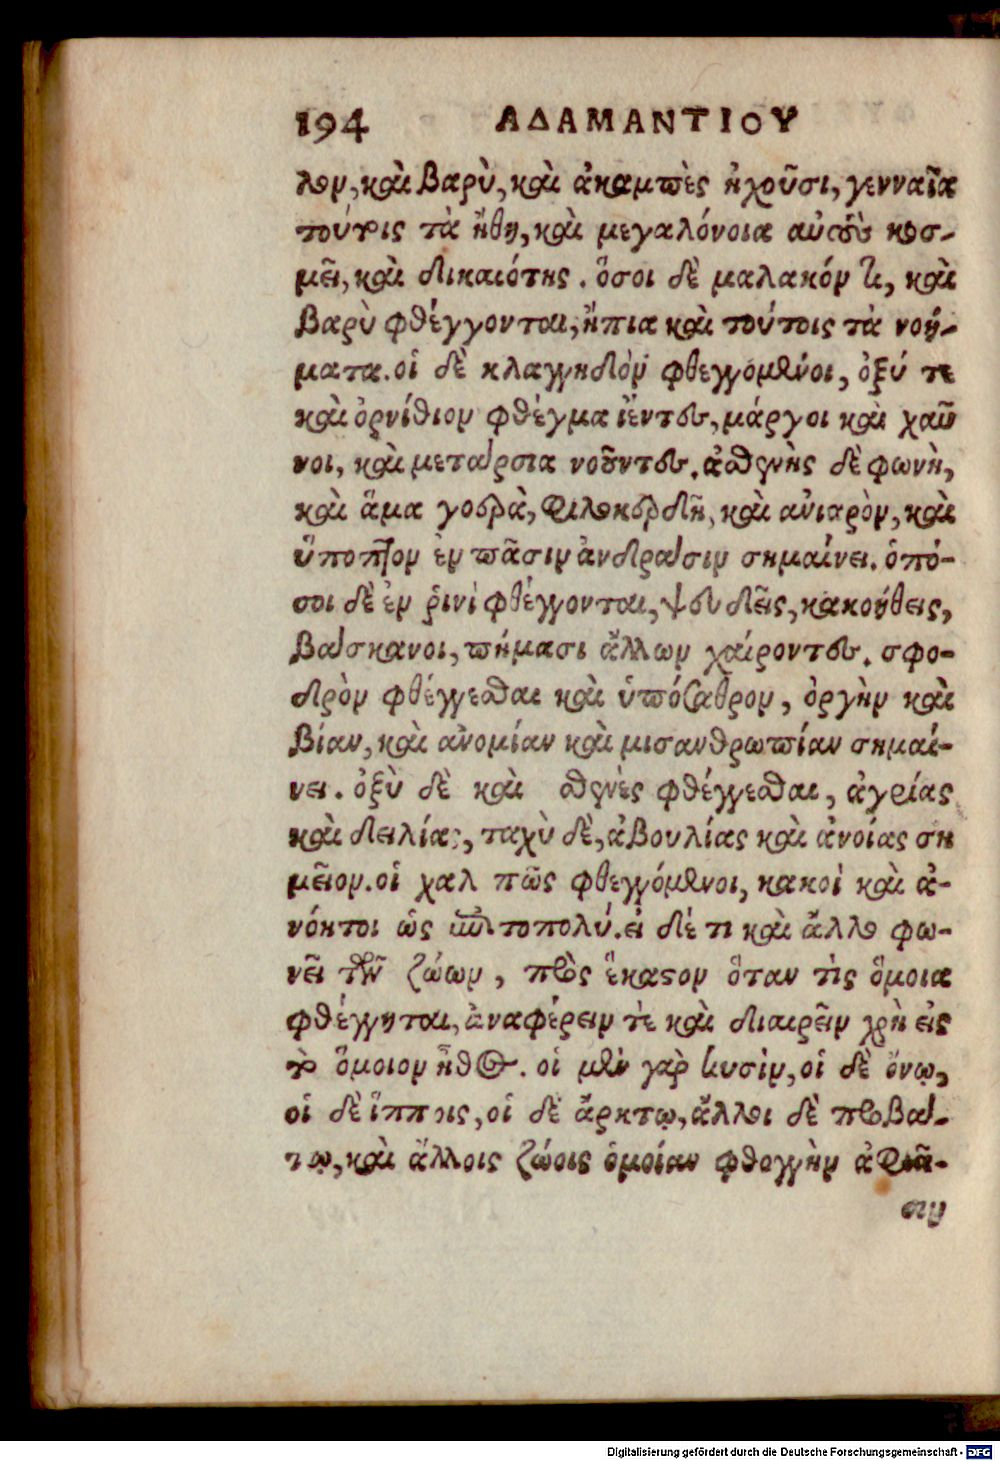 194 ΑΔΑΜΑΝΤΙΟΥ
λον, καὶ βαρὺ, καὶ ἀκαμπὲς ἠχοῦσι, γενναῖα
τούτοις τὰ ἤθη, καὶ μεγαλόνοια αὐτοὺς κοσ-
μεῖ, καὶ δικαιότης. ὅσοι δὲ μαλακόν τε, καὶ
βαρὺ φθέγγονται, ἤπια καὶ τούτοις τὰ νοή-
ματα. οἱ δὲ κλαγγηδὸν φθεγγόμενοι, ὀξύ τε
καὶ ὀρνίθιον φθέγμα ἱέντες, μάργοι καὶ χαῦ
νοι, καὶ μετάρσια νοοῦντες. ἀσθενὴς δὲ φωνὴ,
καὶ ἅμα γοερὰ, φιλοκερδῆ, καὶ ἀνιαρὸν, καὶ
ὕποπτον ἐν πᾶσιν ἀνδράσιν σημαίνει. ὁπό-
σοι δὲ ἐν ῥινὶ φθέγγονται, ψευδεῖς, κακοήθεις,
βάσκανοι, πήμασι ἄλλων χαίροντες. σφο-
δρὸν φθέγγεσθαι καὶ ὑπόσαθρον, ὀργὴν καὶ
βίαν, καὶ ἀνομίαν καὶ μισανθρωπίαν σημαί-
νει. ὀξὺ δὲ καὶ σθενὲς φθέγγεσθαι, ἀγρίας
καὶ δειλίας, ταχὺ δὲ, ἀβουλίας καὶ ἀνοίας ση
μεῖον. οἱ χαλ πῶς φθεγγόμενοι, κακοὶ καὶ ἀ-
νόητοι ὡς ἐπιτοπολύ. εἰ δέ τι καὶ ἄλλο φω-
νεῖ τῶν ζώων, πρὸς ἕκαστον ὅταν τὶς ὅμοια
φθέγγηται, ἀναφέρειν τὲ καὶ διαιρεῖν χρὴ εἰς
τὸ ὅμοιον ἦθος. οἱ μὲν γὰρ κυσὶν, οἱ δὲ ὄνῳ,
οἱ δὲ ἵπποις, οἱ δὲ ἄρκτῳ, ἄλλοι δὲ προβά-
τῳ, καὶ ἄλλοις ζώοις ὁμοίαν φθογγὴν ἀφιᾶ-
σιν
Digitalisierung gefördert durch die Deutsche Forschungsgemeinschaft - DFG